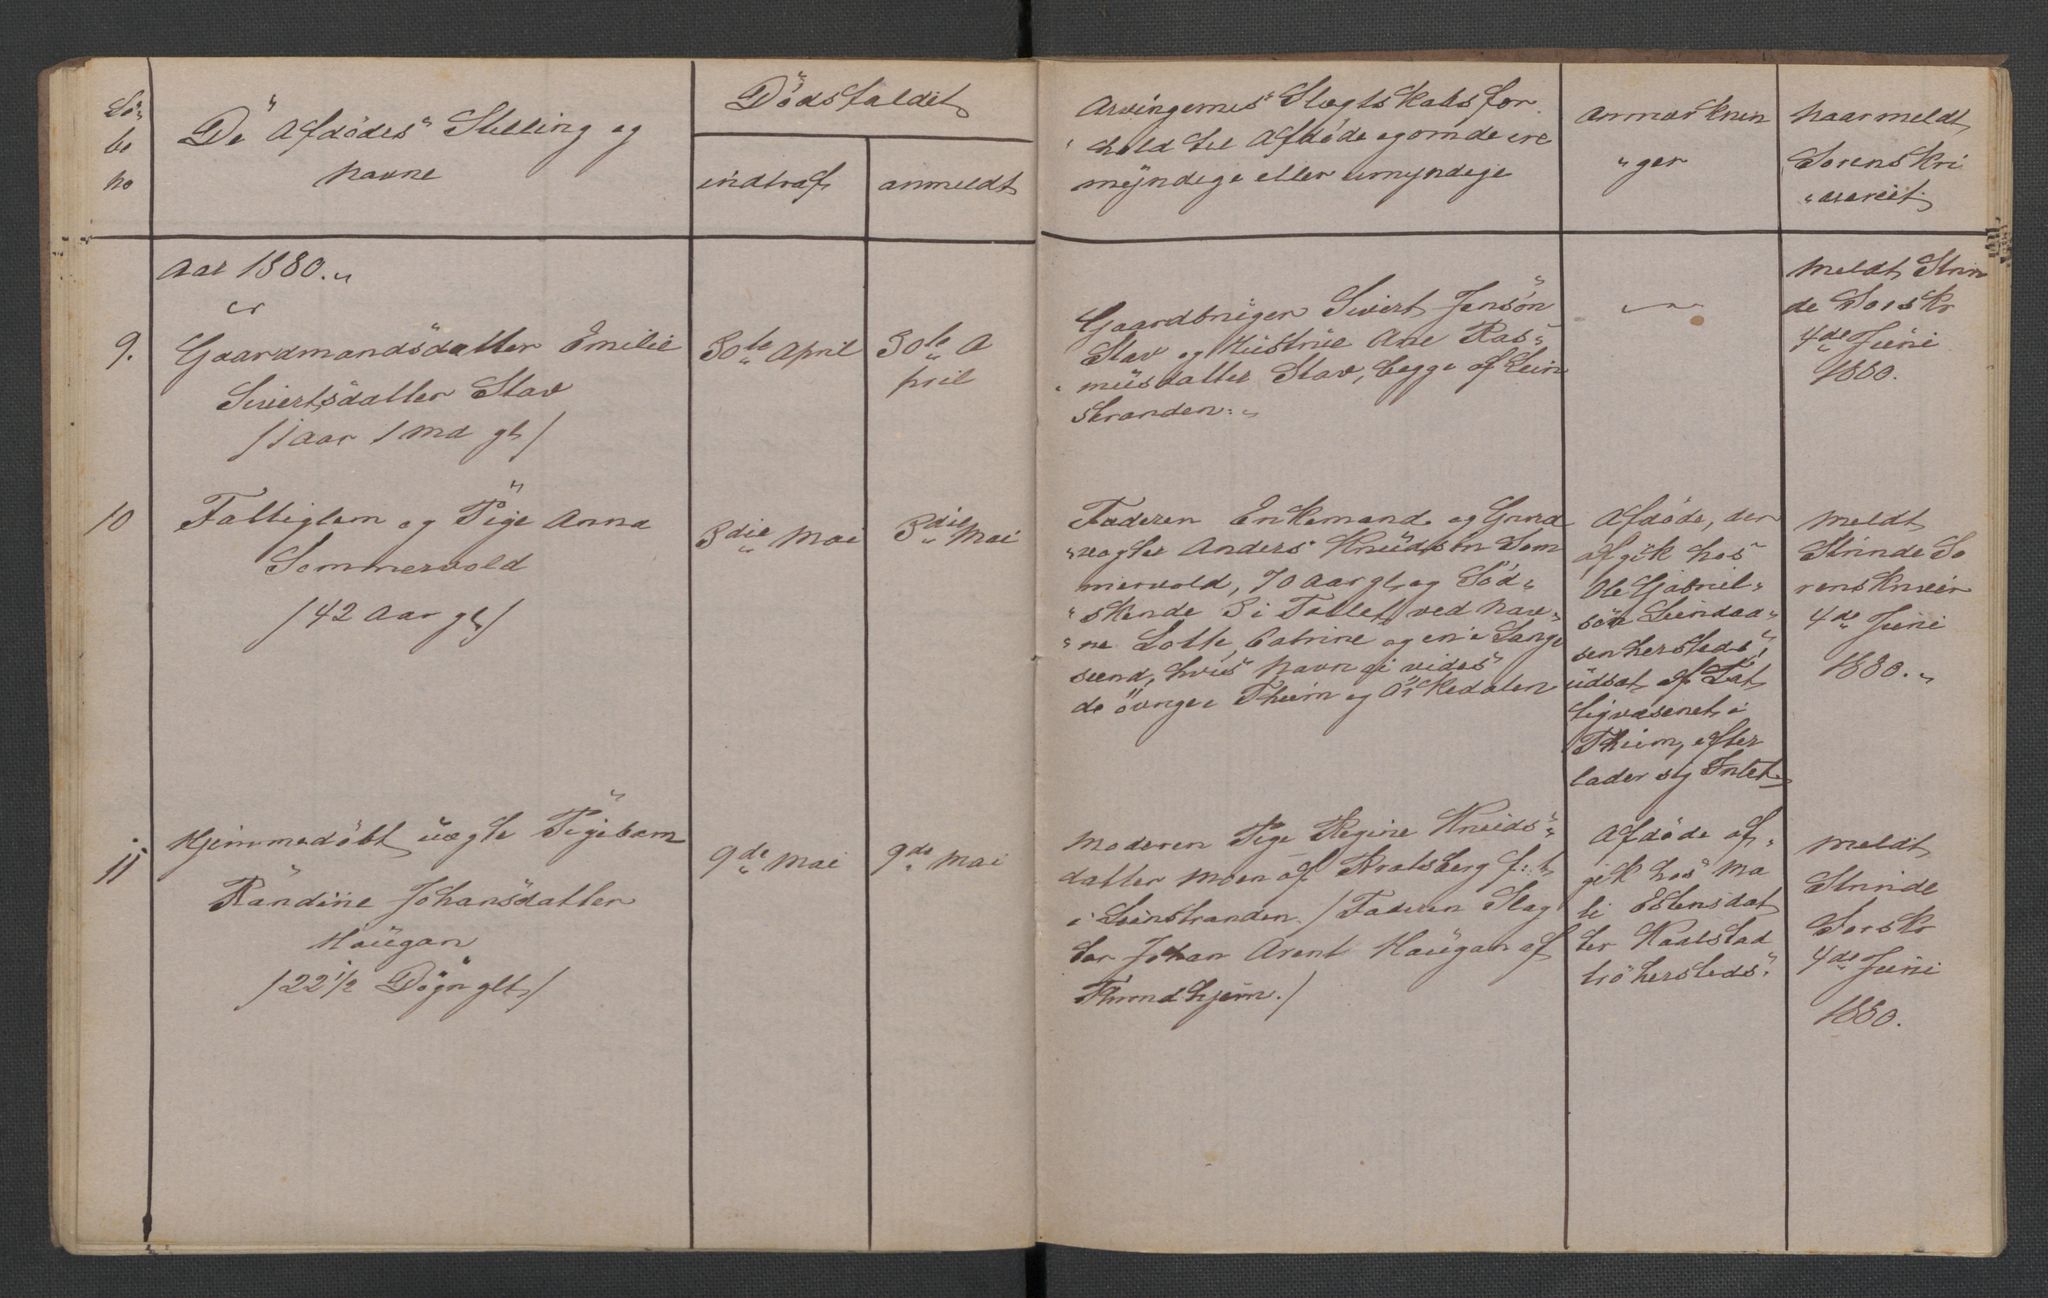 Lö-
be
no
De Afdödes Stilling og
navne
Dödsfaldet
indtraf
anmeldt
Arvingernes Slægtskabsfor
hold til Afdöde og om de ere
myndige eller umyndige
Anmærknin
"ger
naar meldt
Sorenskri
"veriet
Aar 1880.
9.
Gaardmandsdatter Emilie
Sivertsdatter Stav
/1 Aar 1 Md gl/
30te April
30te A
pril
Gaardbruger Sivert Jensön
Stav og Hustrue Ane Ras"
musdatter Stav, begge af Lein
stranden.
meldt Strin
de Sorskr
4de Juni
1880.
10
Fattiglem og Pige Anna
Sommervold
/42 Aar gl/
3die Mai
3die Mai
Faderen Enkemand og Grind
"vogter Anders Knudsön Som
mervold, 70 Aar gl, og Söd"
"skende 3 i Tallet, ved nav"
"ne Lotte, Catrine og en i Lange
sund, hvis navn ei vides
de övrige i Thiem og Örkedalen
Afdöde, der
afgik hos
Ole Gabriel"
sön
hersteds,
udsat af Fat
tigvæsenet i
Thiem, efter
lader sig Intet
meldt
Strinde So
renskriver
4de Juni
1880.
11
Hjemmedöbt uægte Pigebarn
Randine Johansdatter
Haugan
/22 1/2 Dögn glt/
9de Mai
9de Mai
Moderen Pige Regine Knuds"
datter Moen af Kratsberg f:t
i Leinstranden. /Faderen Slag
ter Johan Arent Haugan af
Throndhjem./
Afdöde af"
gik hos Ma
li Estensdat
ter Kaalstad
trö hersteds.
meldt
Strinde
Sorskr
4de Juni
1880.